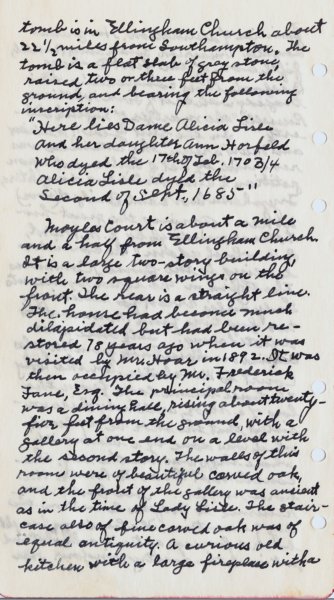 tomb is in Ellingham Church about
22½ miles from Southampton. The
tomb is a flat slab of grey stone,
raised two or three feet from the
ground, and bearing the following
inscription:
"Here lies Dame Alicia Lisle
And her daughter Ann Horfeld
Who dyed the 17th of Feb. 1703/4
Alicia Lisle dyed the
Second of Sept., 1685"
Moyles Court is about a mile
and a half from Ellingham Church.
It is a large two-story building,
with two square wings on the
front. The rear is a straight line.
The house had become much
dilapidated but had been re-
stored 78 years ago when it was
visited by Mr. Hoar in 1892. It was
then occupied by Mr. Frederick
Fane, Esq. The principal room
was a dining hall, rising about twenty-
five feet from the ground, with a
gallery at one end on a level with
the second story. The walls of this
room were of beautiful carved oak,
and the front of the gallery was ancient
as in the time of Lady Lisle. The stair-
case also of fine carved oak was of
equal antiquity. A curious old
kitchen with a large fireplace with a